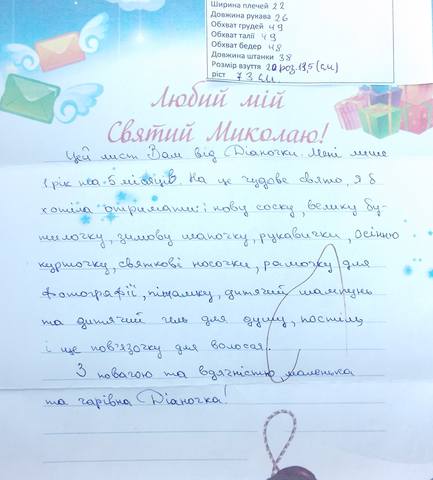 Ширина плечей 22
Довжина рукава 26
Обхват грудей 49
Обхват талії 49
Обхват бедер 48
Довжина штанки 38
Розмір взуття 20 роз. 13,5 (см)
ріст 73 см.
Любий мій
Святий Миколаю!
Цей лист Вам від Діаночки. Мені лише
1 рік та 5 місяців. На це чудове свято, я б
хотіла отримати: і нову соску, велику бу-
тилочку, зимову шапочку, рукавички, осінню
курточку, святкові носочки, рамочку для
фотографії, піжамку, дитячий шампунь
та дитячий гель для душу, постіль
і ще пов'язочку для волосся.
З повагою та вдячністю маленька
та чарівна Діаночка!